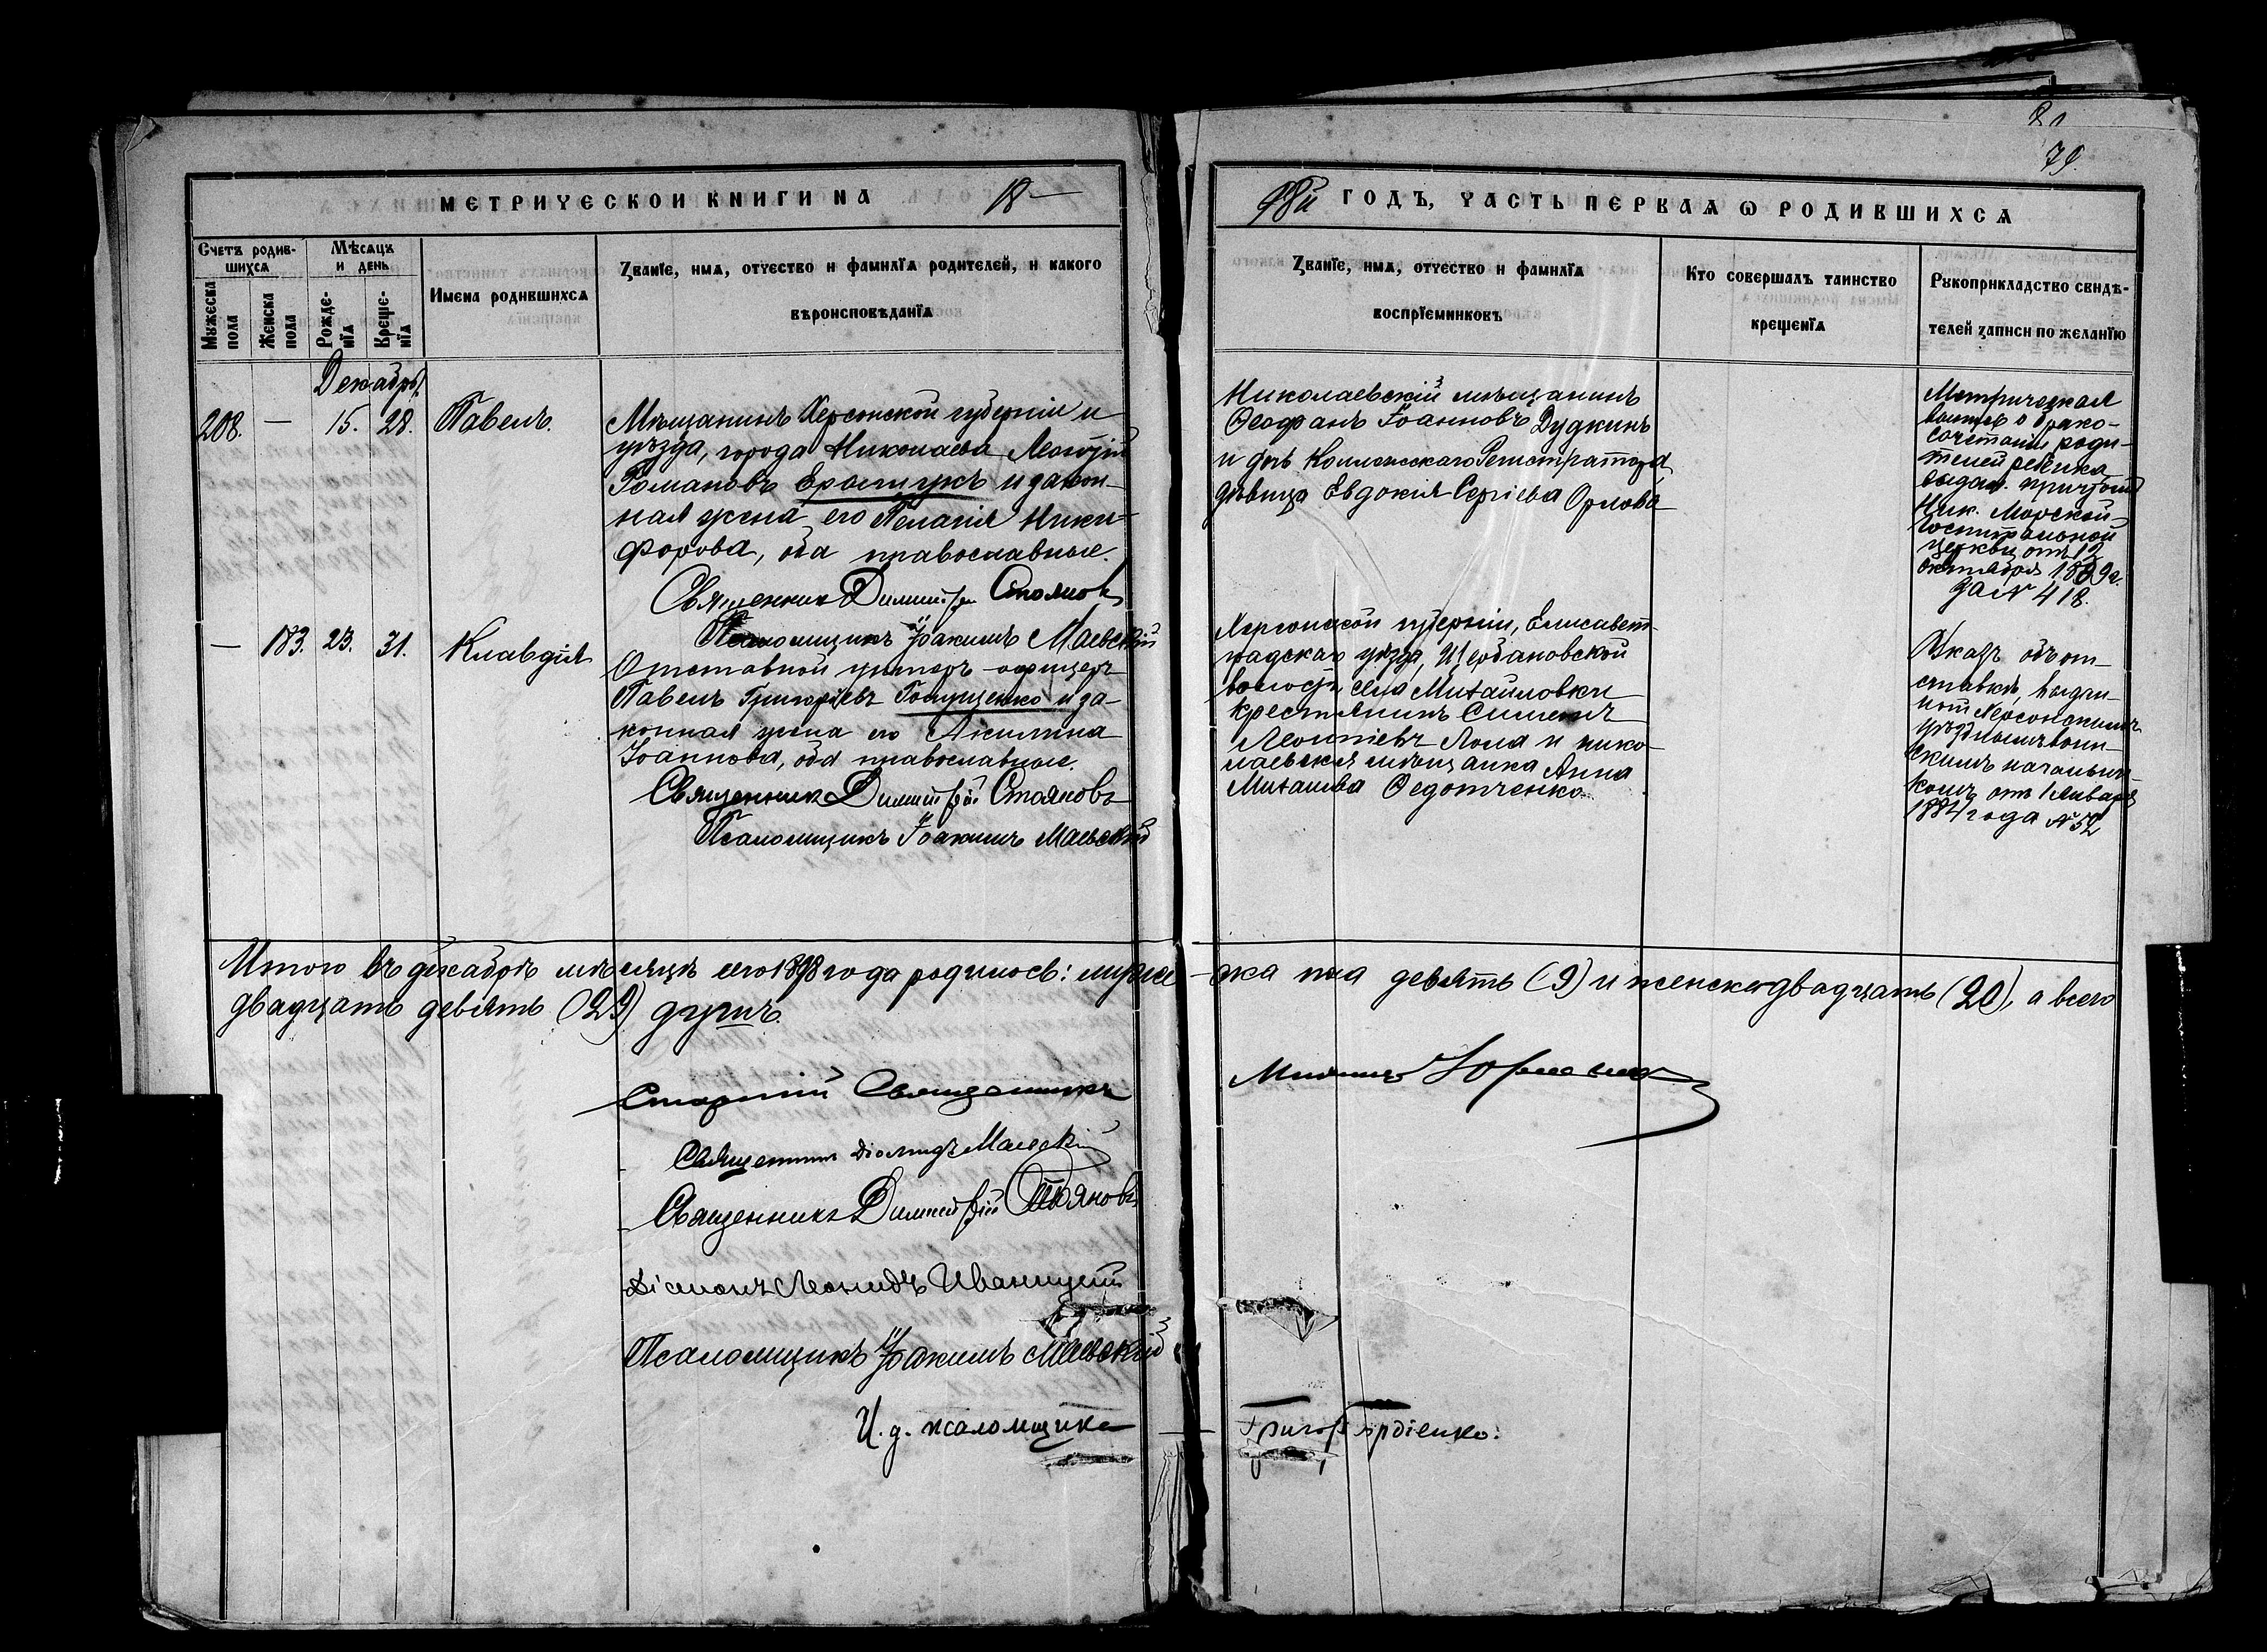 80
79.
МЕТРИЧЕСКОЙ КНИГИ НА 18—
98й ГОДЪ, ЧАСТЬ ПЕРВАЯ Ѡ РОДИВШИХСЯ
Счетъ родив-
шихся
Мѣсяцъ
и день
Мужеска
пола
Женска
пола
Рожде-
нїя
Креще-
нїя
Имена родившихся
Званїе, имя, отчество и фамилїя родителей, и какого
вѣроисповѣданїя
Званїе, имя, отчество и фамилїя
воспрїемниковъ
Кто совершалъ таинство
крещенїя
Рукоприкладство свидѣ-
телей записи по желанїю
Декабрь
208. — 15. 28. Павелъ.
Мѣщанинъ Херсонской губерніи и
уѣзда, города Николаева
Романовъ и закон-
ная жена его Пелагія Ники-
форова, оба православные.
Священникъ Димитрій Стояновъ
Псаломщикъ Іоакимъ Маевскій
Николаевскій мѣщанинъ
Ѳеофанъ Іоанновъ Дудкинъ
и дочь Коллежскаго Регистратора
дѣвица Евдокія Сергіева Орлова
Метрическая
выпись о брако-
сочетаніи роди-
телей ребенка
выдан. причтомъ
Ник. Морской
госпитальной
церкви отъ 12
октября 1889г.
за № 418.
— 183. 23. 31. Клавдія
Отставной унтеръ-офицеръ
Павелъ Григоріевъ и за-
конная жена его Акилина
Іоаннова, оба православные.
Священникъ Димитрій Стояновъ
Псаломщикъ Іоакимъ Маевскій
Херсонской губерніи, Елисавет-
градскаго уѣзда, Щербановской
волости, села Михайловки
крестьянинъ Симеонъ
Леонтіевъ Лола и нико-
лаевская мѣщанка Анна
Михаилова Ѳедотченко
Указъ объ от-
ставкѣ, выдан-
ный Херсонскимъ
уѣзднымъ воин-
скимъ начальни-
комъ отъ 1 Января
1884 года № 52
Итого въ декабрѣ мѣсяцѣ сего 1898 года родилось: муже-ска пола девять (9) и женска двадцать (20), а всего
двадцать девять (29) душъ.
Старшій Священникъ
Священникъ Діомидъ Маевскій
Священникъ Димитрій Стояновъ
Діаконъ Леонидъ Иваницкій
Псаломщикъ Іоакимъ Маевскій
И. д. псаломщика Григорій Гордіенко.